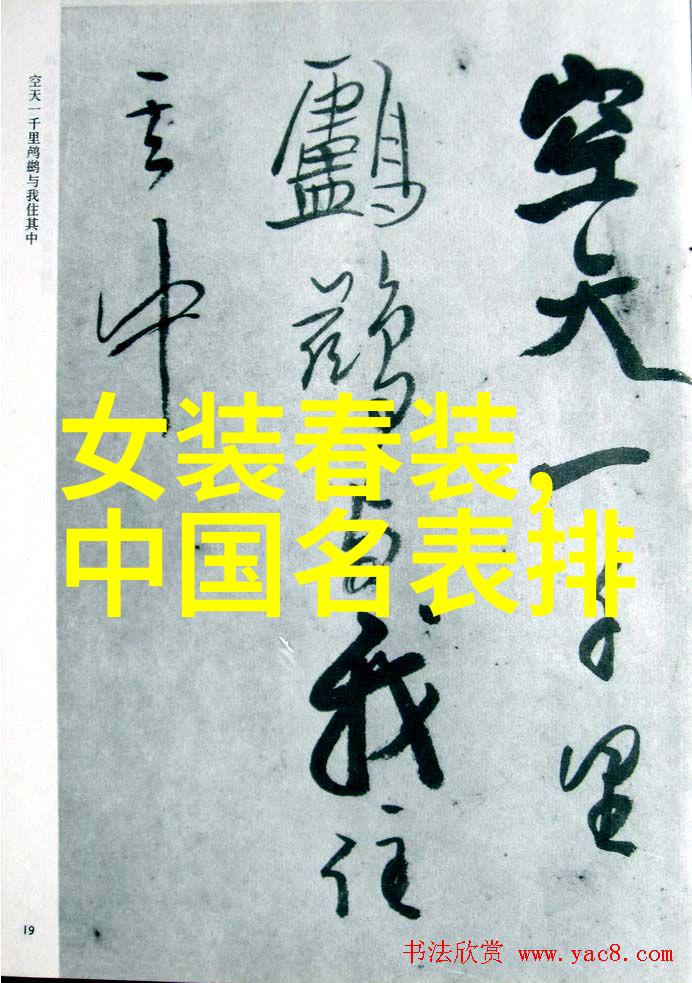 空天一千里
鸕鷀与我住
其中
空天一千里鸬鹚与我住其中
女装春装,
中国名表排
19
书法欣赏 www.yac8.com